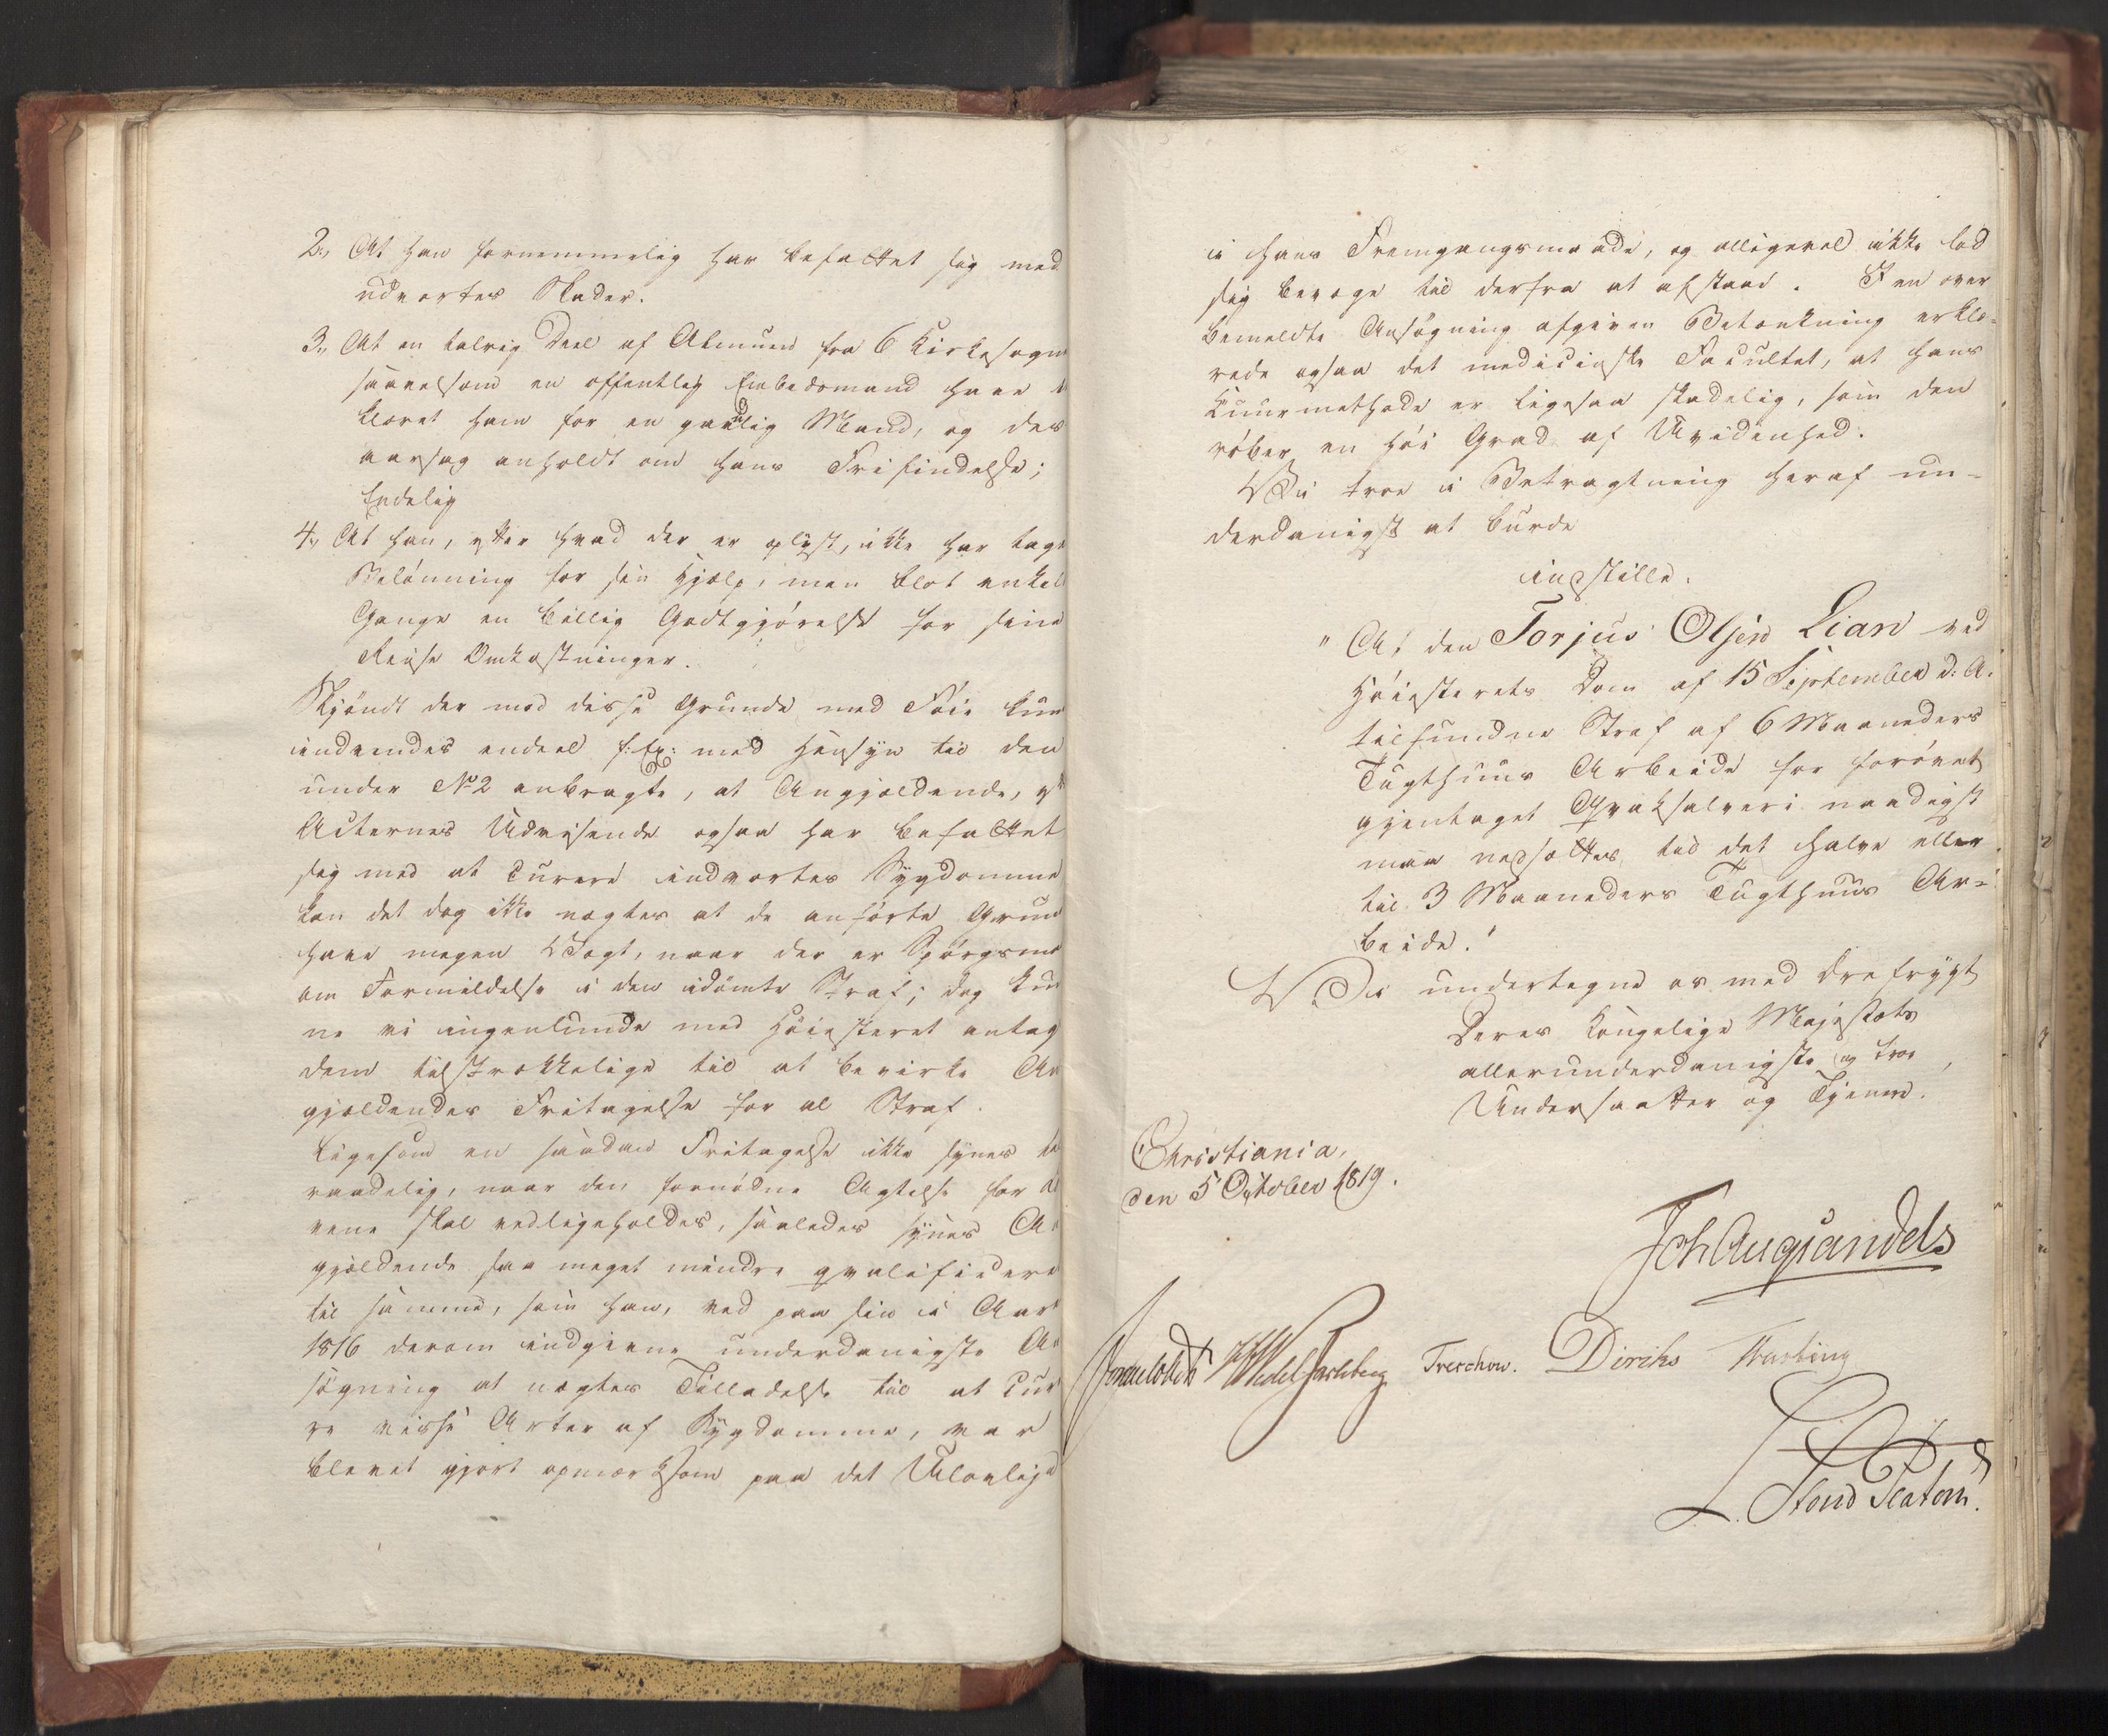 2., At han fornemmelig har befattet sig med
udvortes Skader.
3., At en talrig Deel af Almuen fra 6 Kirkesogne
saavelsom en offentlig Embedsmand have
klæret ham for en gavnlig Mand, og des
aarsag anholdt om hans Frifindelse;
Endelig
4., At han, efter hvad der er oplyst, ikke har tage
Belönning for sin Hjælp, men blot enkel
Gange en billig Godtgjörelse for sine
Reise Omkostninger.
Skjöndt der mod disse Grunde med Föie kun
indvendes endeel f: Ex: med Hensyn til den
under No 2 anbragte, at Angjældende, ef
Acternes Udvisende ogsaa har befattet
sig med at curere indvortes Sygdomme
kan det dog ikke nægtes at de anförte Grun
have megen Vægt, naar der er Spörgsmaa
om Formildelse i den idömte Straf; dog kun
ne vi ingenlunde med Höiesteret antag
dem tilstrækkelige til at bevirke An
gjældendes Fritagelse for al Straf.
Ligesom en saadan Fritagelse ikke synes
raadelig, naar den fornödne Agtelse for
vene skal vedligeholdes, saaledes synes An
gjældende saa meget mindre qvalificere
til samme, som han, ved paa sin i Aar
1816 derom indgivne underdanigste An
sögning at nægtes Tilladelse til at cur
re visse Arter af Sygdomme, var
blevet gjort opmærksom paa det Ulovlige
i hans Fremgangsmaade, og alligevel ikke lod
sig bevæge til derfra at afstaae. I en over
bemeldte Ansögning afgiven Betænkning erklæ-
rede ogsaa det medicinske Facultet, at hans
Kuurmethode er ligesaa skadelig, som den
röber en höi Grad af Uvidenhed.
Vi troe i Betragtning heraf un-
derdanigst at burde
indstille:
" At den Torjus Olsen Lian ved
Höiesterets Dom af 15 September d: A.
tilfundne Straf af 6 Maaneders
Tugthuus Arbeide for forövet
gjentaget Qvaksalveri naadigst
maa nedsættes til det halve eller
til 3 Maaneders Tugthuus Ar-
beide."
Vi undertegne os med Ærefrygt
Deres Kongelige Majestæts
allerunderdanigste og troe
Undersaatter og Tjenere.
Christiania,
den 5 October 1819.
Joh Aug Sandels
Sommerhielm HWedel Jarlsberg Treschow. Diriks Fasting
L. Stoud Platou.